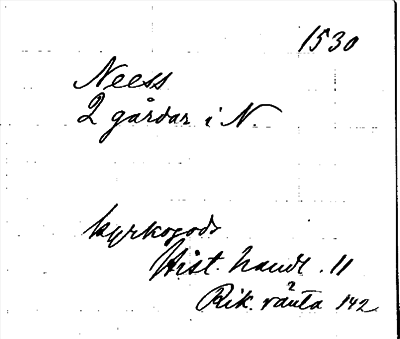 1530
Neess
2 gårdar i N.
kyrkogods
Hist. handl. 11
2
Rik. ränta 142